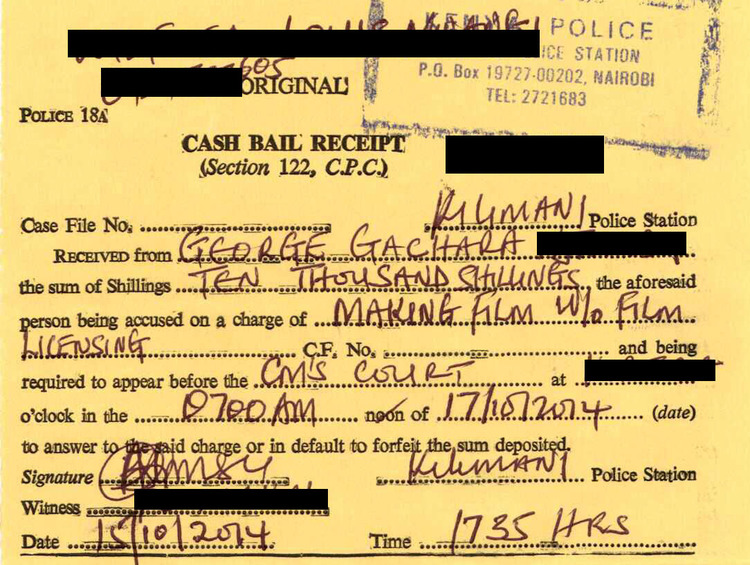 POLICE
ICE STATION
P.O. Box 19727-00202, NAIROBI
TEL: 2721683
ORIGINAL
POLICE 18A
CASH BAIL RECEIPT
(Section 122, C.P.C.)
Case File No. KILIMANI Police Station
RECEIVED from GEORGE GACHARA
the sum of Shillings TEN THOUSAND SHILLINGS, the aforesaid
person being accused on a charge of MAKING FILM W/o FILM
LICENSING C.F. No. and being
required to appear before the CM'S COURT at
o'clock in the 0700AM noon of 17/10/2014 (date)
to answer to the said charge or in default to forfeit the sum deposited.
Signature KILIMANI Police Station
Witness
Date 15/10/2014 Time 1735 HRS